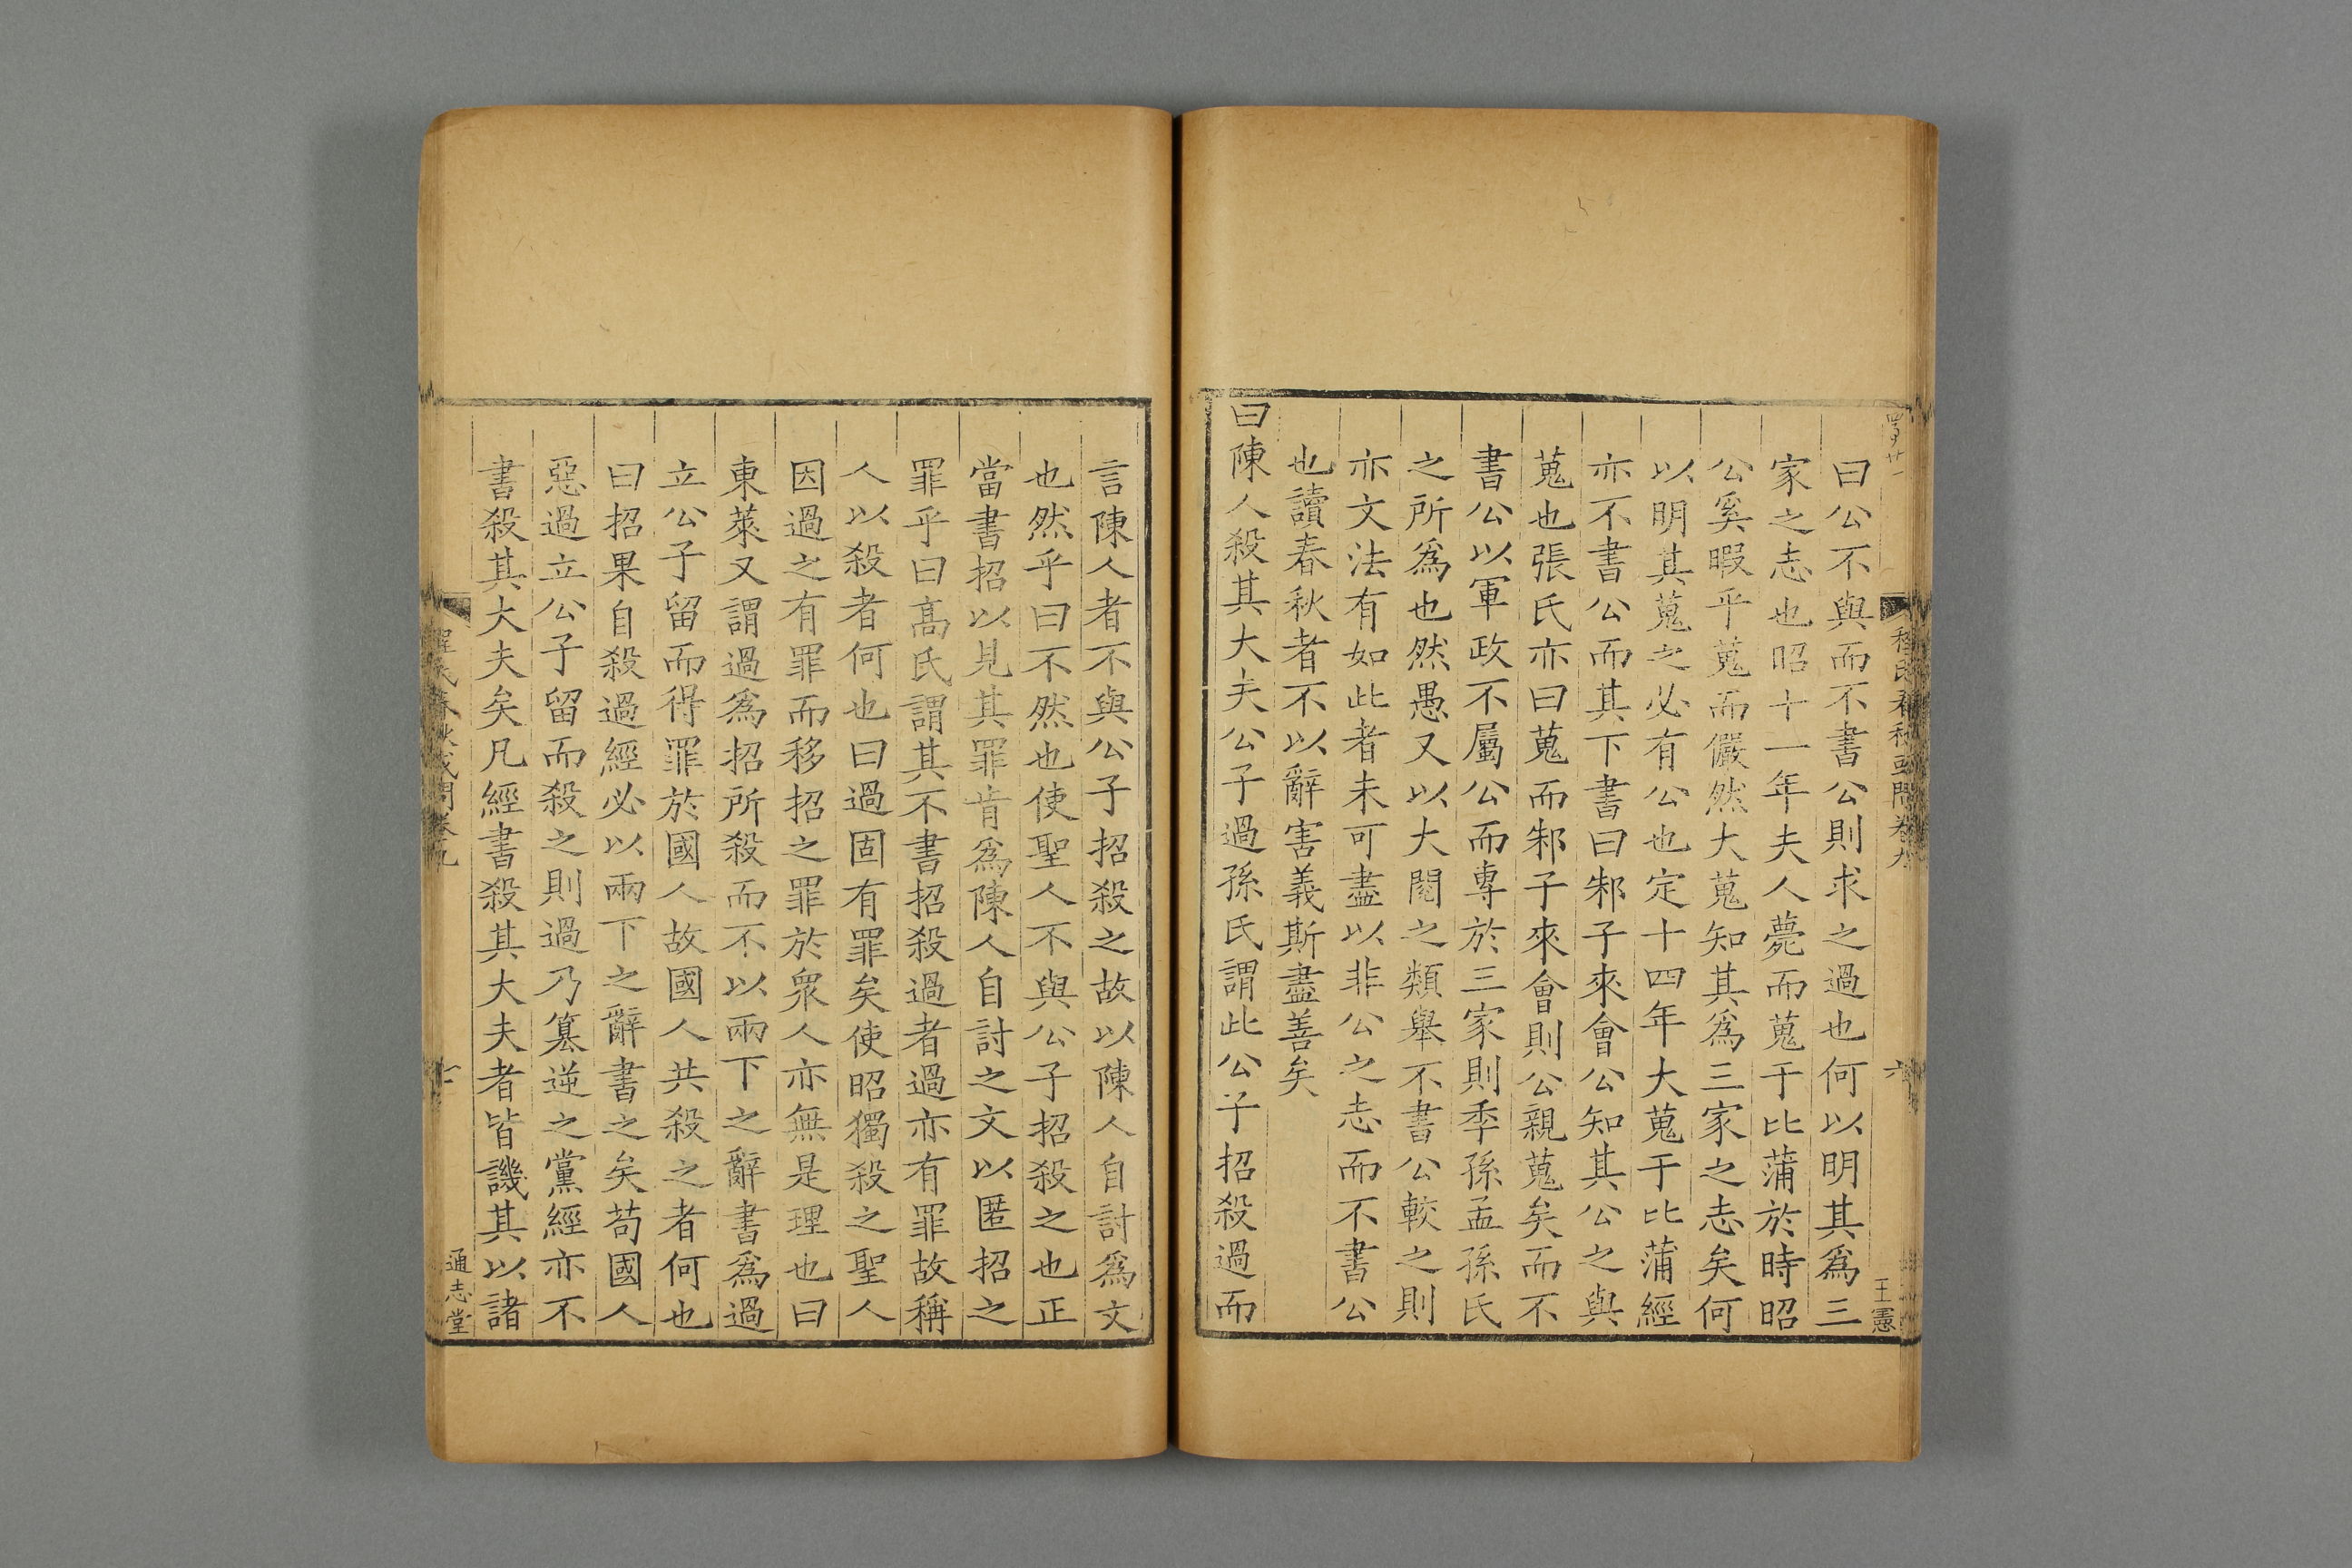 曰公不與而不書公則求之過也何以明其爲三
家之志也昭十一年夫人薨而蒐于比蒲於時昭
公奚暇乎蒐而儼然大蒐知其爲三家之志矣何
以明其蒐之必有公也定十四年大蒐于比蒲經
亦不書公而其下書曰邾子來會公知其公之與
蒐也張氏亦曰蒐而邾子來會則公親蒐矣而不
書公以軍政不屬公而專於三家則季孫孟孫氏
之所爲也然愚又以大閱之類舉不書公較之則
亦文法有如此者未可盡以非公之志而不書公
也讀春秋者不以辭害義斯盡善矣
曰陳人殺其大夫公子過孫氏謂此公子招殺過而
言陳人者不與公子招殺之故以陳人自討爲文
也然乎曰不然也使聖人不與公子招殺之也正
當書招以見其罪肯爲陳人自討之文以匿招之
罪乎曰高氏謂其不書招殺過者過亦有罪故稱
人以殺者何也曰過固有罪矣使昭獨殺之聖人
因過之有罪而移招之罪於衆人亦無是理也曰
東萊又謂過爲招所殺而不以兩下之辭書爲過
立公子留而得罪於國人故國人共殺之者何也
曰招果自殺過經必以兩下之辭書之矣苟國人
惡過立公子留而殺之則過乃篡逆之黨經亦不
書殺其大夫矣凡經書殺其大夫者皆譏其以諸
程氏春秋或問卷九
六
王憲
通志堂